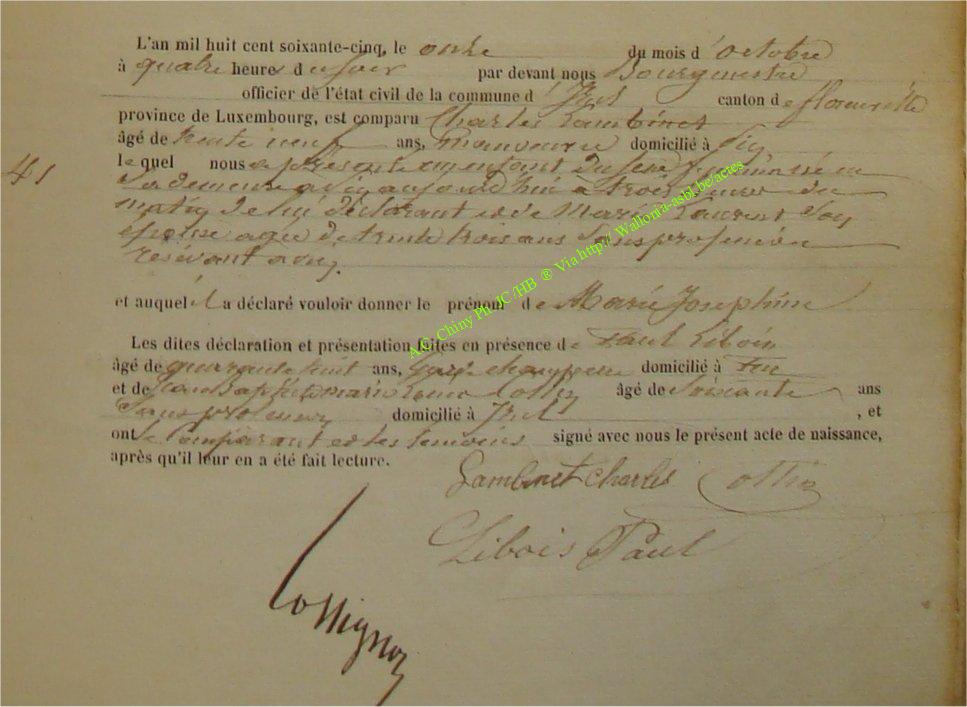 L'an mil huit cent soixante-cinq, le onze du mois d'octobre
à quatre heures du soir par devant nous Bourgmestre
officier de l'état civil de la commune d'Izel canton de florenville
province de Luxembourg, est comparu Charles Lambinet
âgé de trente neuf ans, manoeuvre domicilié à
41
lequel nous a présenté un enfant du sexe féminin né en
sa demeure aujourd'hui a trois heures du
matin de lui déclarant et de Marie Laurent son
épouse agée de trente trois ans sans profession
et auquel il a déclaré vouloir donner le prénom de Marie Josephine
Les dites déclaration et présentation faites en présence de Paul Libois
âgé de quarante huit ans, Garde champetre domicilié à
et de Jean Baptiste marie âgé de soixante ans
sans profession domicilié à Izel , et
ont le Comparant et les temoins signé avec nous le présent acte de naissance,
après qu'il leur en a été fait lecture.
Lambinet Charles
Libois Paul
A.G. Chiny Ph JC /HB ® Via http:// Wallonia-asbl.be/actes